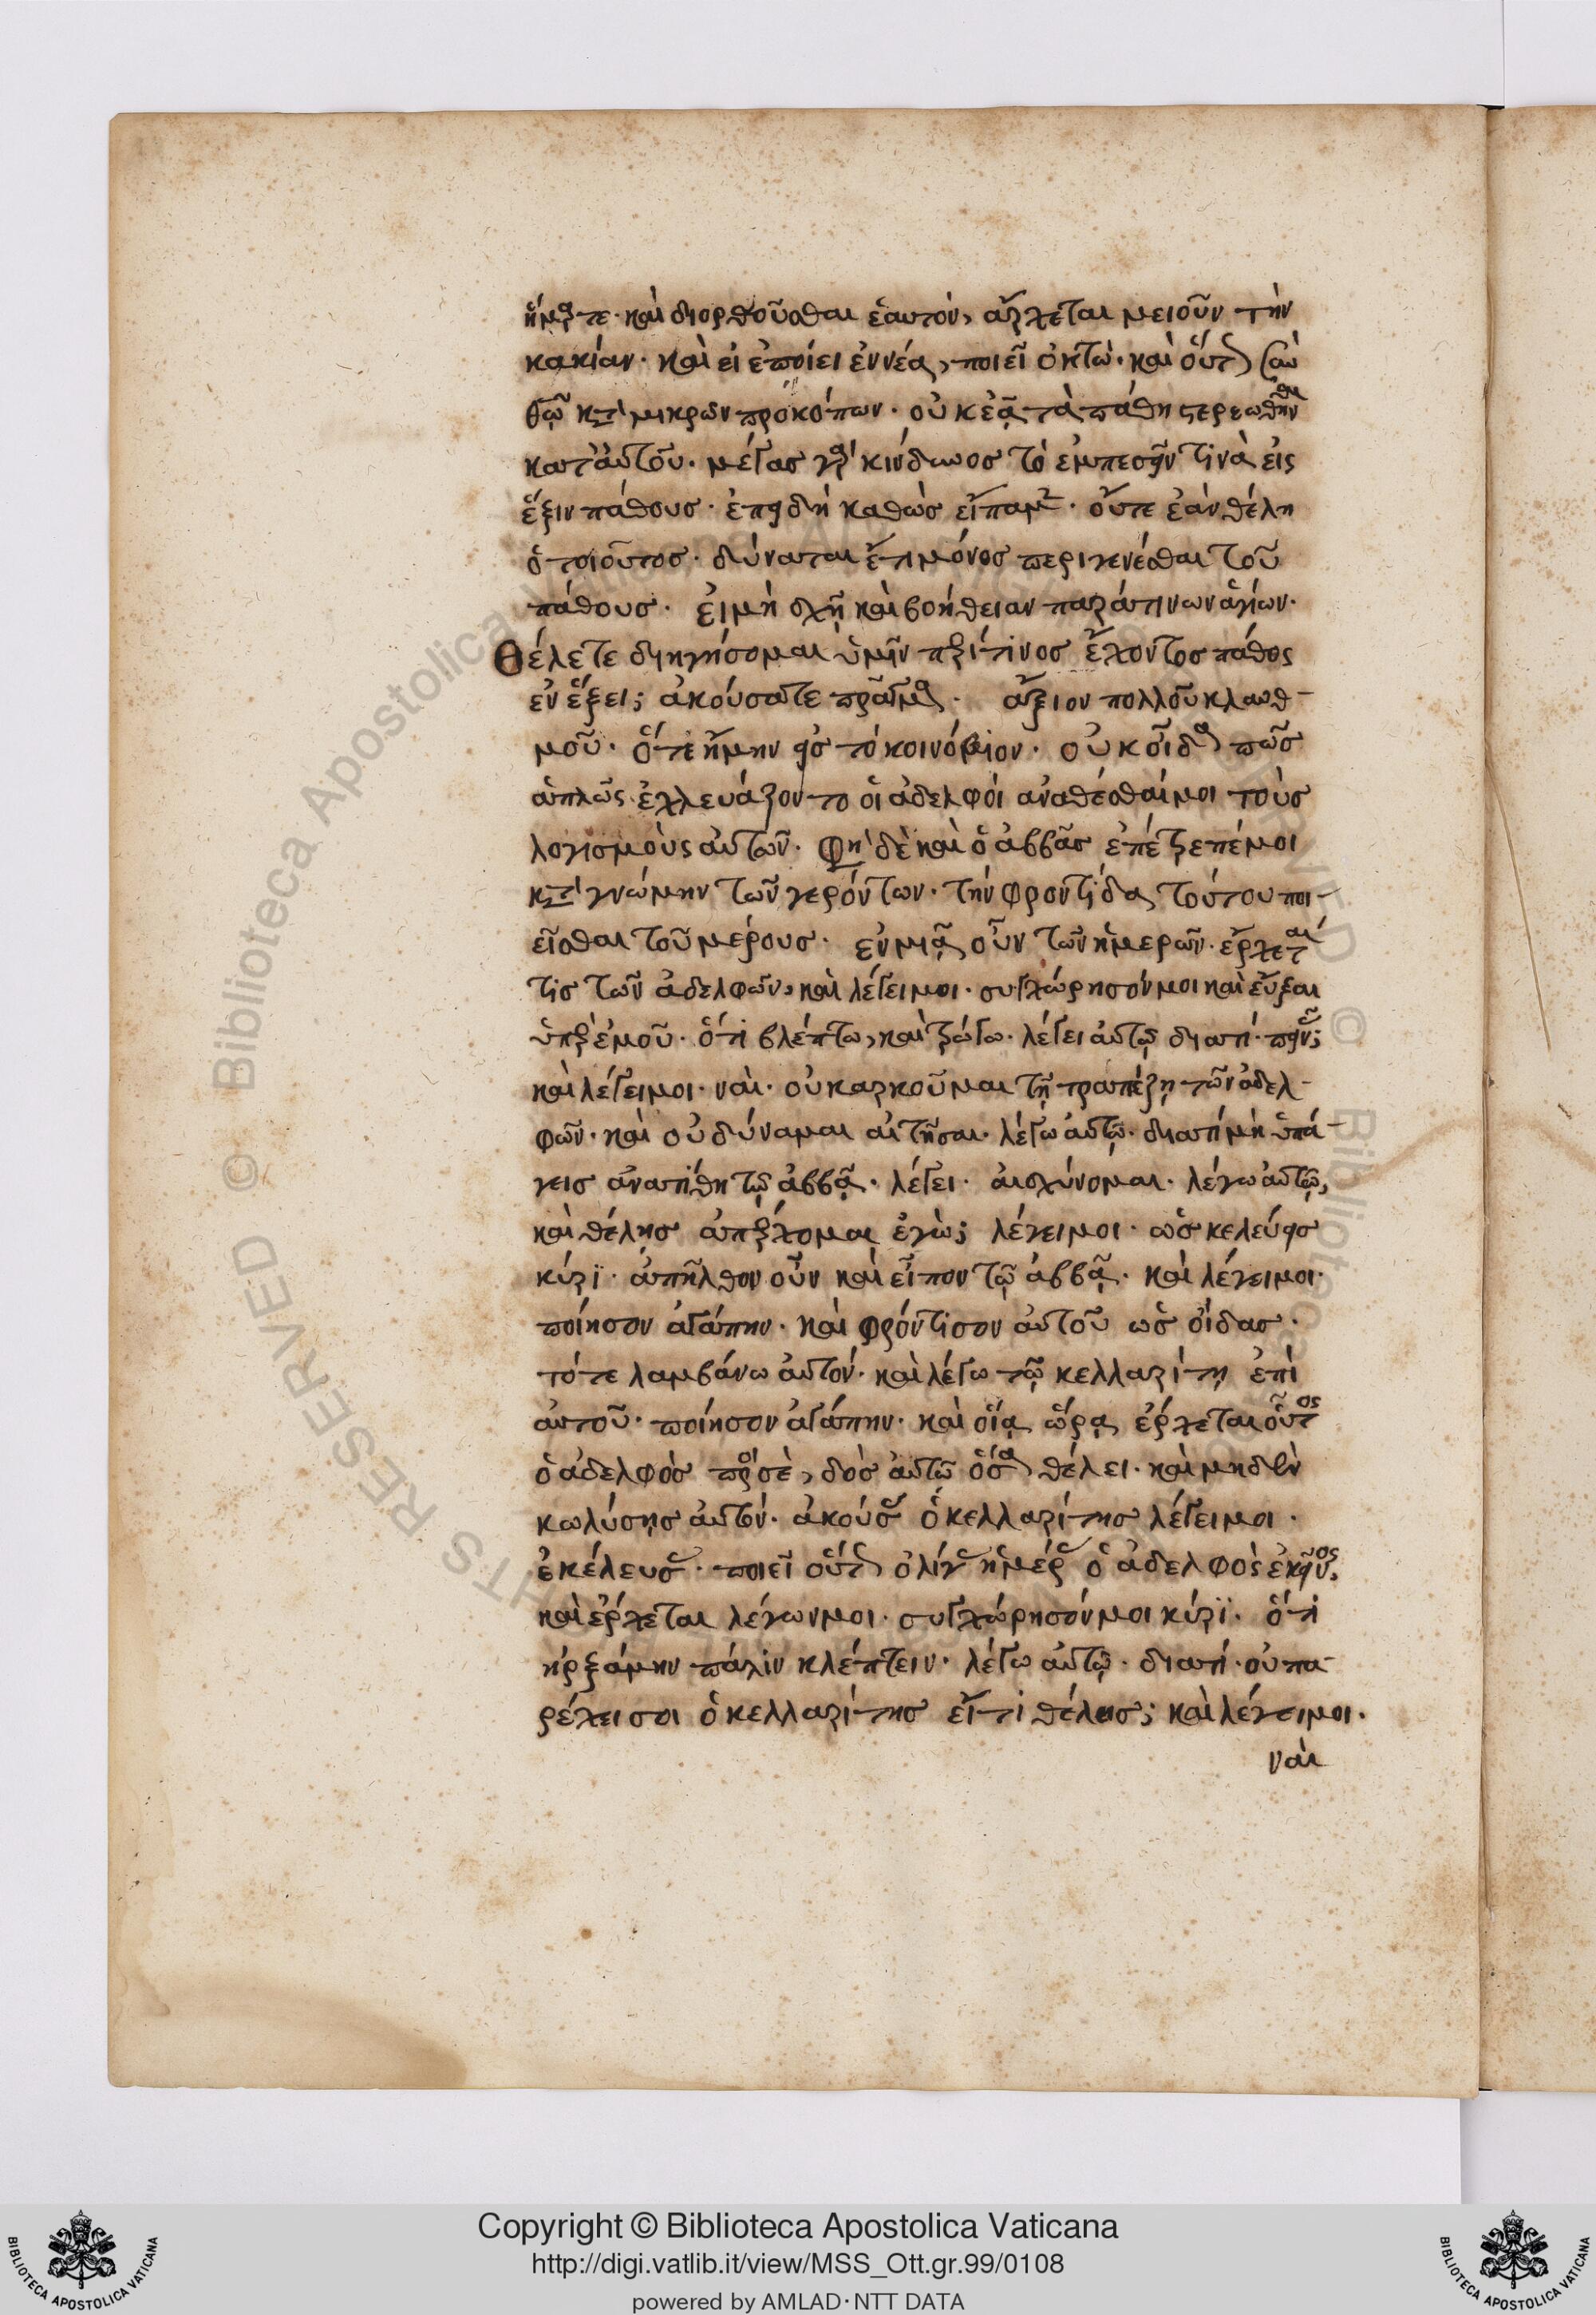 ἥμαρτε· καὶ διορθοῦσθαι ἑαυτὸν, ἄρχεται μειοῦν τὴν
κακίαν· καὶ εἰ ἐποίει ἐννέα, ποιεῖ ὀκτώ· καὶ οὕτως σὺν
θῶ κατὰ μικρὸν προκόπτων· οὐκ ἐᾷ τὰ πάθη στερεωθῆναι
κατ' αὐτοῦ· μέγας γὰρ κίνδυνος τὸ ἐμπεσεῖν τινὰ εἰς
ἕξιν πάθους· ἐπειδὴ καθὼς εἴπαμεν· οὔτε ἐὰν θέλη
ὁ τοιοῦτος· δύναται ἔτι μόνος περιγενέσθαι τοῦ
πάθους· εἰ μὴ σχῆ καὶ βοήθειαν παρά τινων ἁγίων·
Θέλετε διηγήσομαι ὑμῖν περί τινος ἔχοντος πάθος
ἐν ἕξει; ἀκούσατε πρᾶγμα· ἄξιον πολλοῦ κλαυθ-
μοῦ· ὅτε ἤμην εἰς τὸ κοινόβιον· οὐκ οἶδα πῶς
ἁπλῶς ἐχλευάζοντο οἱ ἀδελφοὶ ἀναθέσθαι μοι τοὺς
λογισμοὺς αὐτῶν· Φησὶ δὲ καὶ ὁ ἀββᾶς ἐπέτρεπέ μοι
κατὰ γνώμην τῶν γερόντων· τὴν φροντίδα τούτου ποι-
εῖσθαι τοῦ μέρους· ἐν μιᾷ οὖν τῶν ἡμερῶν· ἔρχεται
τὶς τῶν ἀδελφῶν, καὶ λέγει μοι· συγχώρησόν μοι καὶ εὖξαι
ὑπὲρ ἐμοῦ· ὅτι βλέπτω, καὶ τρώγω· λέγει αὐτῷ διατί· πεινᾷς;
καὶ λέγει μοι· ναί· οὐκ ἀρκοῦμαι τῇ τραπέζῃ τῶν ἀδελ-
φῶν· καὶ οὐ δύναμαι αἰτῆσαι· λέγω αὐτῷ· διατί μὴ ὑπά-
γεις ἀνατίθῃ τῷ ἀββᾷ· λέγει· αἰσχύνομαι· λέγω αὐτῷ,
καὶ θέλῃς ἀπέρχομαι ἐγώ; λέγει μοι· ὡς κελεύεις
κύρι· ἀπῆλθον οὖν καὶ εἶπον τῷ ἀββᾷ· καὶ λέγει μοι·
ποίησον ἀγάπην· καὶ φρόντισον αὐτοῦ ὡς οἶδας·
τότε λαμβάνω αὐτόν· καὶ λέγω τῷ κελλαρίτῃ ἐπὶ
αὐτοῦ· ποίησον ἀγάπην· καὶ οἵᾳ ὥρᾳ ἔρχεται οὗτος
ὁ ἀδελφὸς πρὸς σὲ, δὸς αὐτῷ ὅσα θέλει· καὶ μηδὲν
κωλύσῃς αὐτόν· ἀκούσας ὁ κελλαρίτης λέγει μοι·
ἐκέλευσας· ποιεῖ οὕτως ὀλίγας ἡμέρας ὁ ἀδελφὸς ἐκεῖνος,
καὶ ἔρχεται λέγων μοι· συγχώρησόν μοι κύρι· ὅτι
ἠρξάμην πάλιν κλέπτειν· λέγω αὐτῷ· διατί· οὐ πα-
ρέχει σοι ὁ κελλαρίτης εἴ τι θέλεις; καὶ λέγει μοι·
ναὶ
Copyright © Biblioteca Apostolica Vaticana
http://digi.vatlib.it/view/MSS_Ott.gr.99/0108
powered by AMLAD·NTT DATA